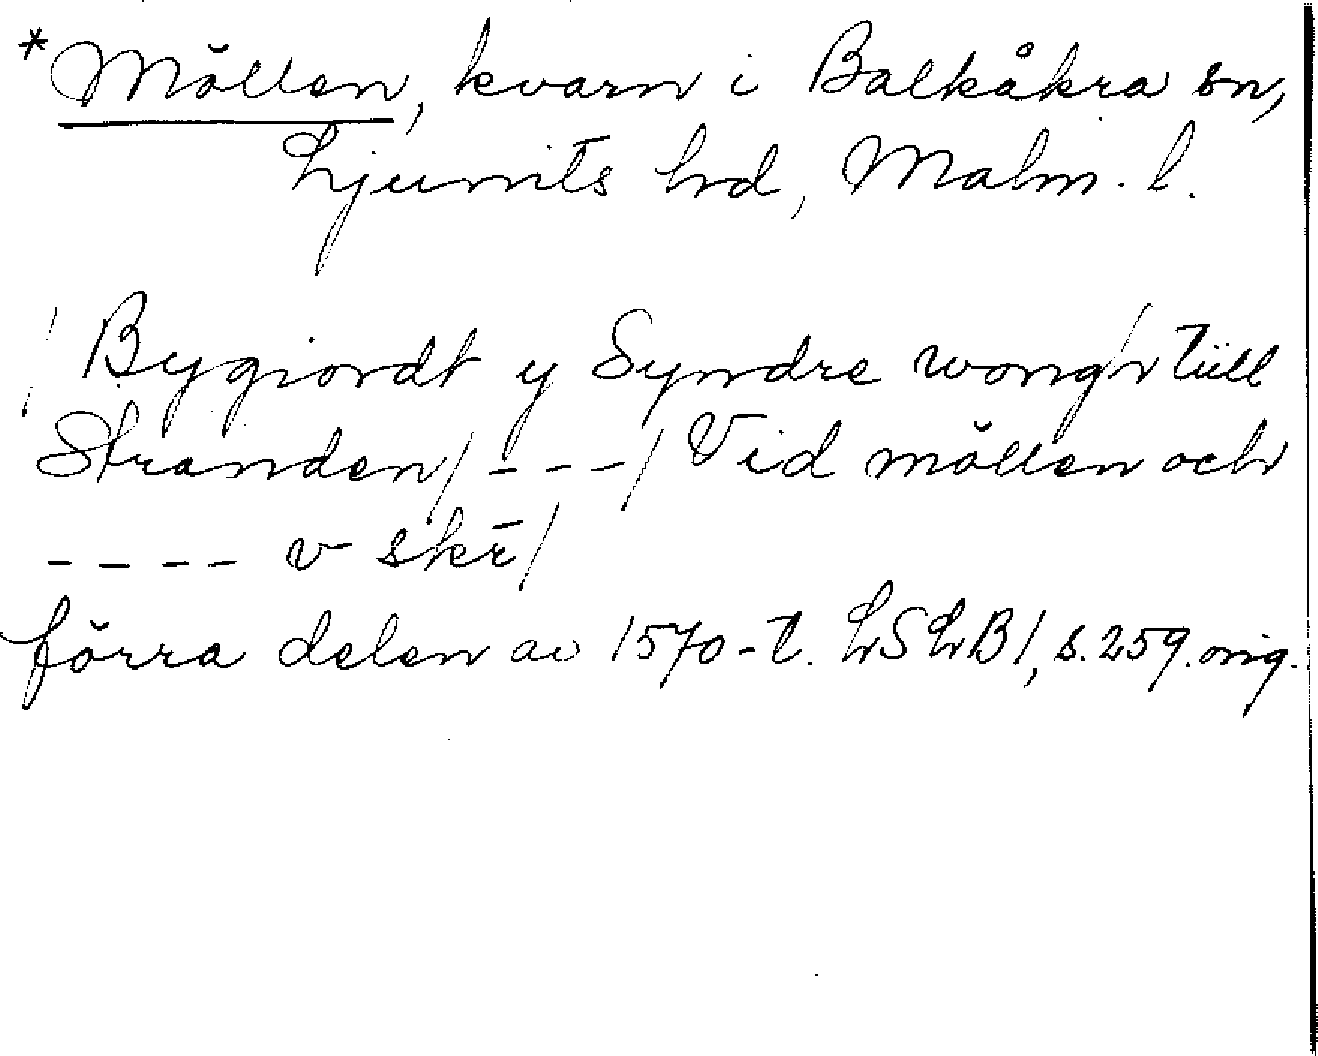 *Möllen, kvarn i Balkåkra sn,
Ljunits hd, Malm. l.
/Bygiordt y Syndre wongh till
Stranden/ - - - / Vid möllen och
- - - - v skē/
förra delen av 1570-t. LSLB1, s. 259. orig.